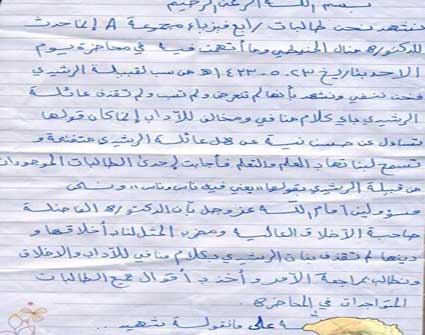 بسم الله الرحمن الرحيم
نشهد نحن طالبات رابع فيزياء مجموعة A لما حدث
للدكتورة منال الحنيطي وما أتهمت فيه في محاضرة يوم
الاحد بتاريخ ٢٣-٥-١٤٣٣هـ من سب لقبيلة الرشيدي
فنحن ننفي ونشهد بأنها لم تتعرض ولم تسب ولم تقذف عائلة
الرشيدي بأي كلام منافي ومخالف للآداب إنما كان قولها
تساءل عن حسن نية عن هل عائلة الرشيدي متفتحة و
تسمح لبناتها بالعلم والتعلم فأجابت إحدى الطالبات الموجودات
من قبيلة الرشيدي بقولها «يعني فيه ناس وناس» ونحن
مسؤولين أمام الله عز وجل بأن الدكتورة الفاضلة
صاحبة الأخلاق العالية ومضرب المثل لنا بأخلاقها و
دينها لم تقذف بنات الرشيدي بكلام منافي للآداب والاخلاق
ونطالب بمراجعة الأمر وأخذ أقوال جميع الطالبات
المتواجدات في المحاضرة
على مانقوله شهيد...